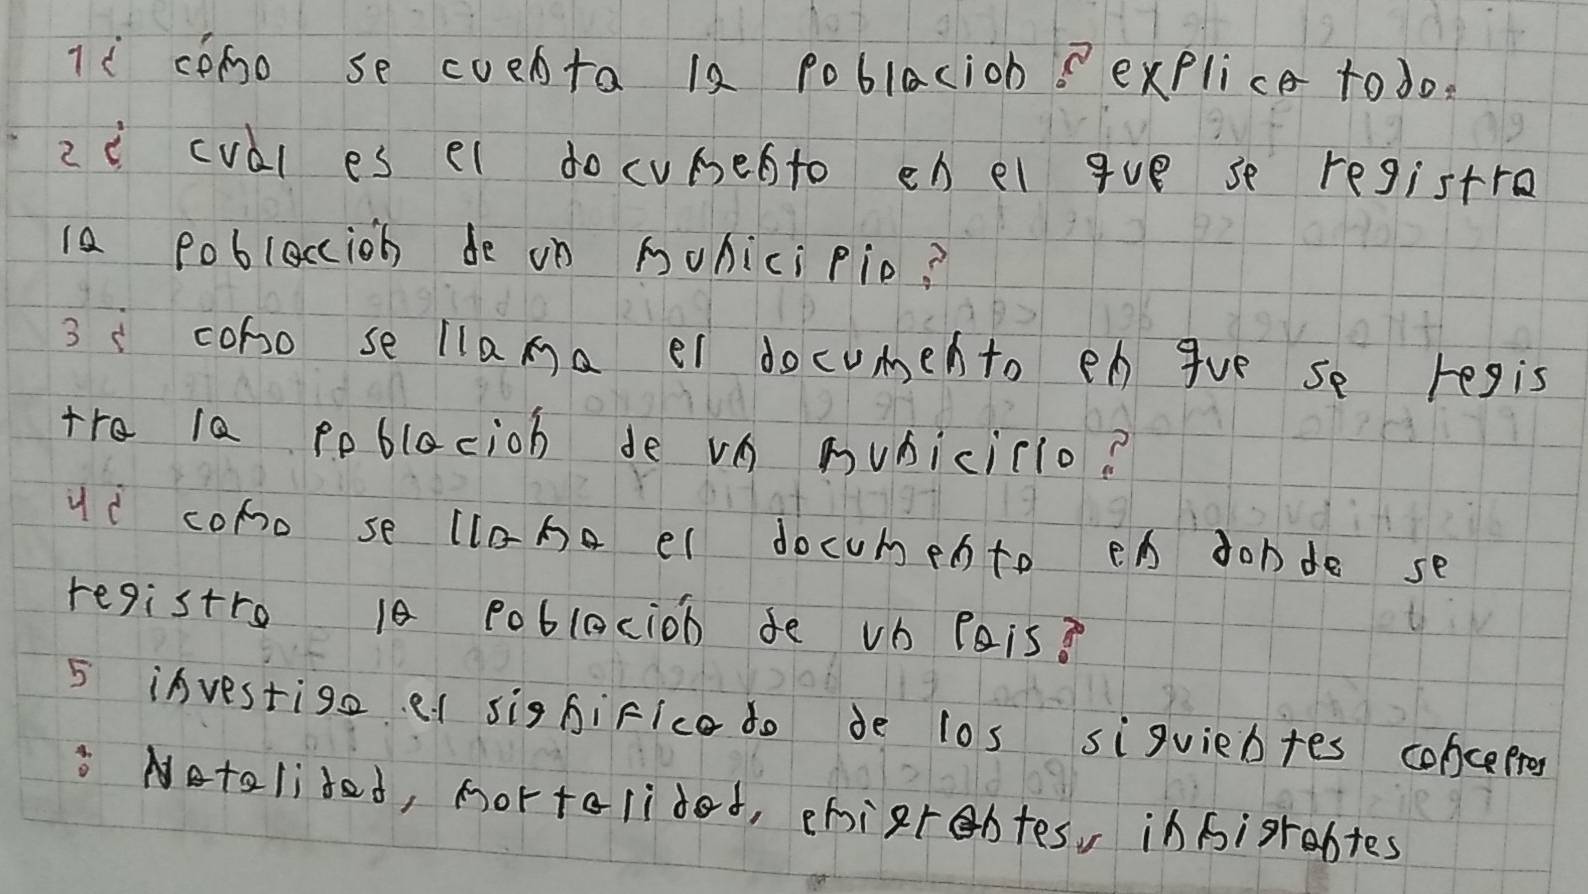 1 ¿ cómo se cuenta la poblacion? explica todo.
2 ¿ cuál es el documento en el que se registra
la poblacción de un municipio?
3 ¿ como se llama el documento en que se regis
tra la población de un municipio?
4 ¿ como se llama el documento en donde se
registra la población de un pais?
5 investiga el significado de los siguientes conceptos
: Natalidad, mortalidad, emigrantes, inmigrantes